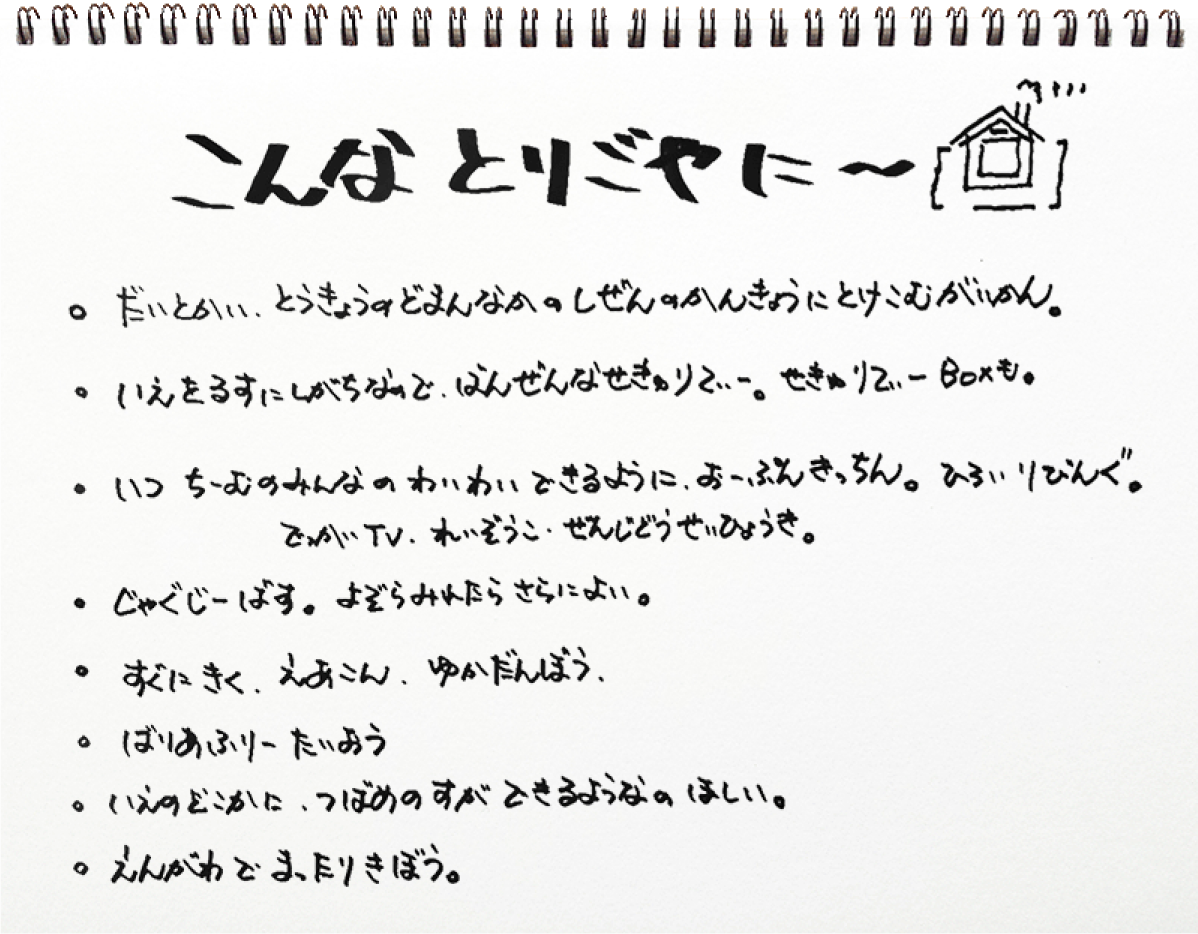 こんな とりごやに〜
だいとかい、とうきょうのどまんなかのしぜんのかんきょうにとけこむがいかん。
いえをるすにしがちなので、ばんぜんなせきゅりてぃー。せきゅりてぃーBoxも。
いつ ちーむのみんなの わいわい できるように、おーぷんきっちん。ひろい りびんぐ。
でっかいTV、れいぞうこ・ぜんじどうせいひょうき。
じゃぐじーばす。よぞらみれたら さらによい。
すぐに きく、えあこん、ゆかだんぼう、
ばりあふりー たいおう
いえのどこかに、つばめのすが できるようなの ほしい。
えんがわで まったりきぼう。